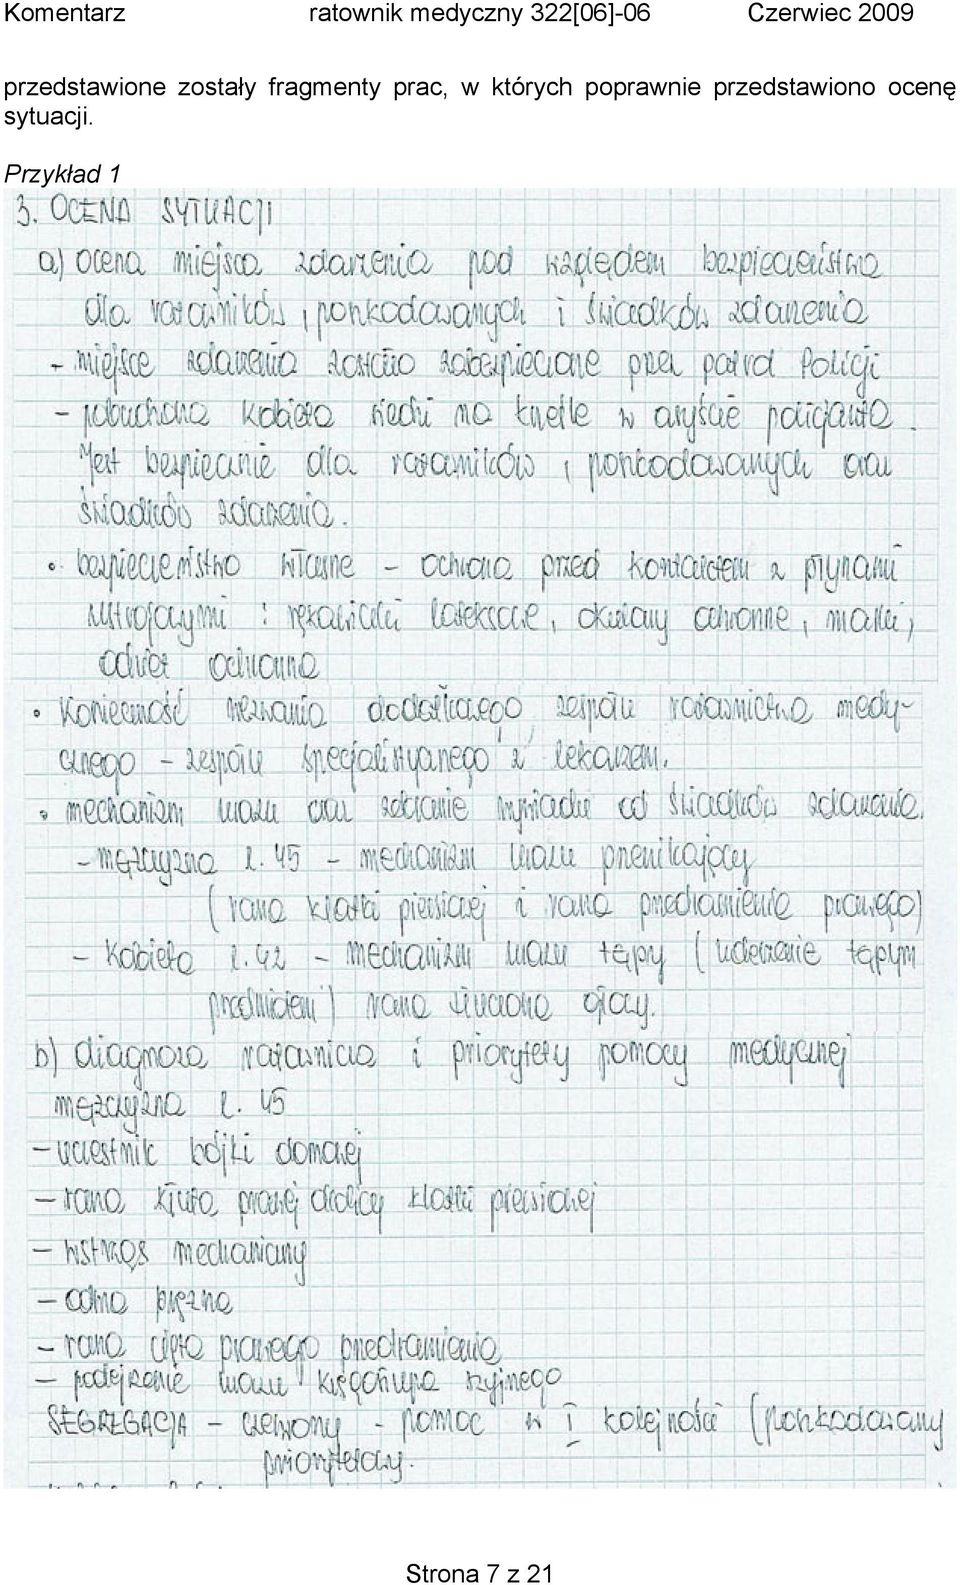 Komentarz ratownik medyczny 322[06]-06 Czerwiec 2009
przedstawione zostały fragmenty prac, w których poprawnie przedstawiono ocenę
sytuacji.
Przykład 1
3. OCENA SYTUACJI
a) ocena miejsca zdarzenia pod względem bezpieczeństwa
dla ratowników, poszkodowanych i świadków zdarzenia
- miejsce zdarzenia zostało zabezpieczone przez patrol Policji
- pobudzona kobieta siedzi na krześle w asyście policjanta.
Jest bezpiecznie dla ratowników, poszkodowanych oraz
świadków zdarzenia.
• bezpieczeństwo własne - ochrona przed kontaktem z płynami
ustrojowymi : rękawiczki lateksowe, okulary ochronne, maski,
odzież ochronna
• Konieczność wezwania dodatkowego zespołu ratownictwa medy-
cznego - zespołu specjalistycznego z lekarzem.
• mechanizm urazu oraz zebranie wywiadu od świadków zdarzenia.
- mężczyzna l. 45 - mechanizm urazu przenikający
(rana klatki piersiowej i rana przedramienia prawego)
- Kobieta l. 42 - mechanizm urazu tępy (uderzenie tępym
przedmiotem) rana tłuczona głowy.
b) diagnoza ratownicza i priorytety pomocy medycznej
mężczyzna l. 45
- uczestnik bójki domowej
- rana kłuta prawej okolicy klatki piersiowej
- wstrząs mechaniczny
- odma prężna
- rana cięta prawego przedramienia
- podejrzenie urazu kręgosłupa szyjnego
SEGREGACJA - czerwony - pomoc w I kolejności (poszkodowany
priorytetowy.
Strona 7 z 21